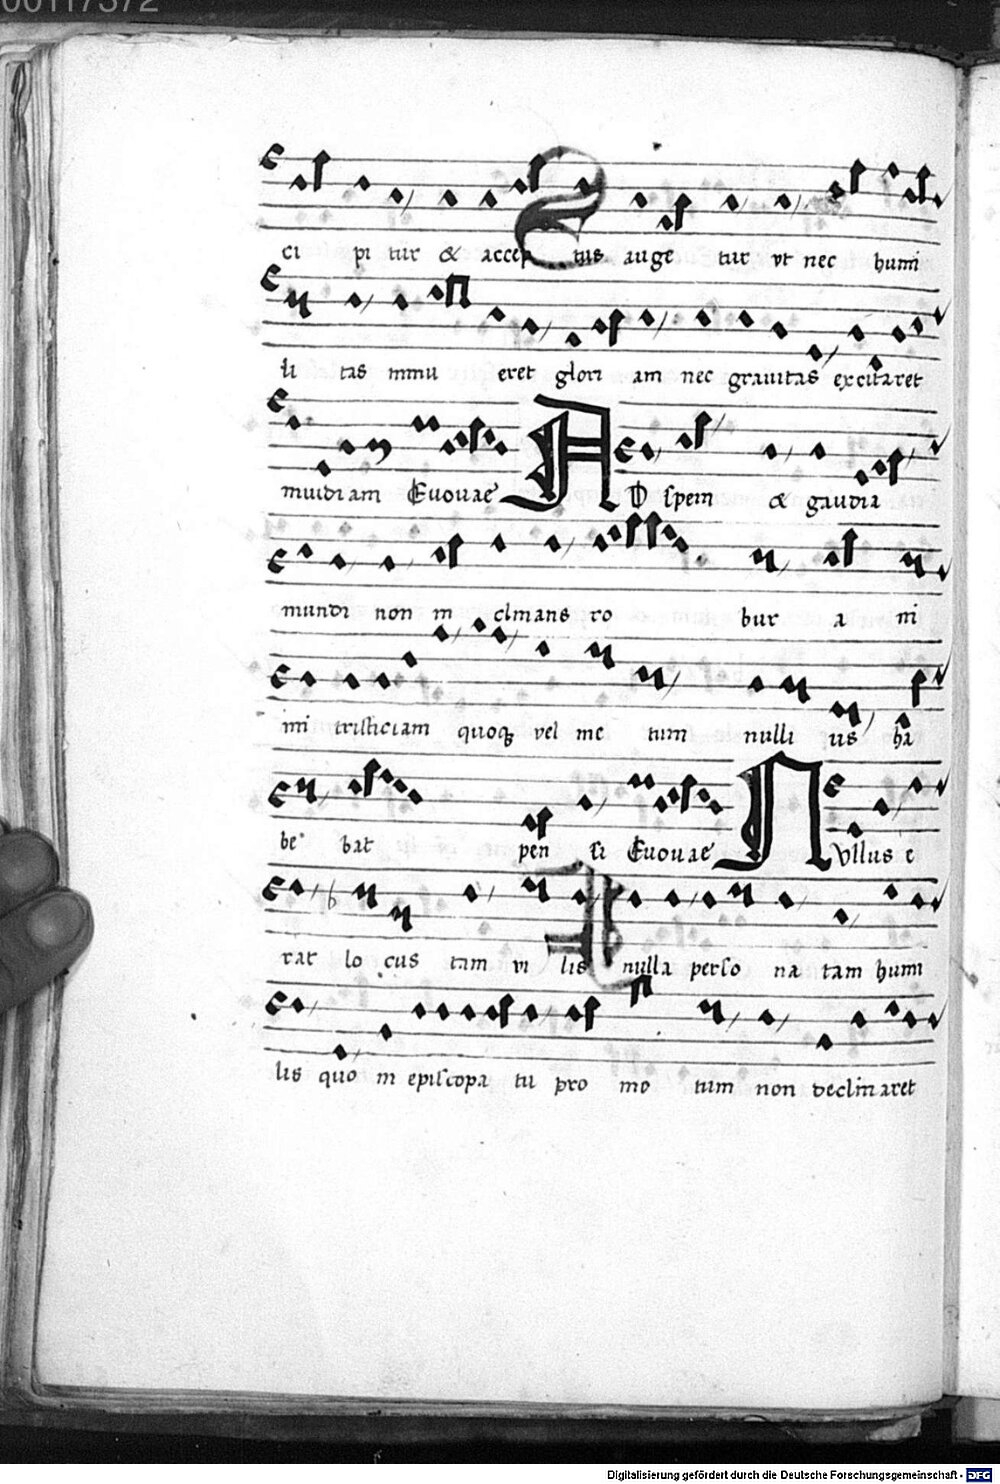 00117372
ci pi tur & accep tus auge tur vt nec humi
li tas minu eret glori am nec grauitas excitaret
inuidiam Euouae AD spem & gaudia
mundi non in clinans ro bur a ni
mi tristiciam quoqꝫ vel me tum nulli us ha
be bat pen si Euouae NVllus e
rat lo cus tam vi lis nulla perso na tam humi
lis quo in episcopa tu pro mo tum non declinaret
Digitalisierung gefördert durch die Deutsche Forschungsgemeinschaft - DFG